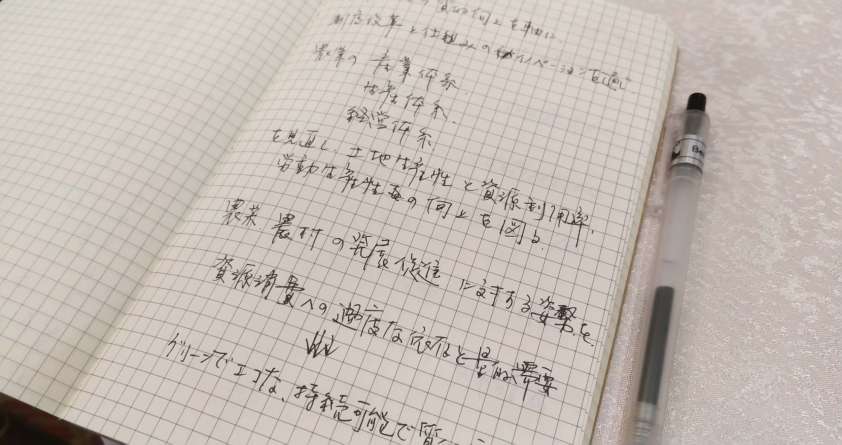 の質的向上を軸に
制度改革と仕組みのイノベーションを通じ
農業の 産業体系
生産体系.
経営体系
を見直し、土地生産性と資源利用率、
労働生産性の向上を図る
農業 農村の発展促進に対する姿勢を、
資源消費への過度な依存と量的需要
グリーンでエコな、持続可能で